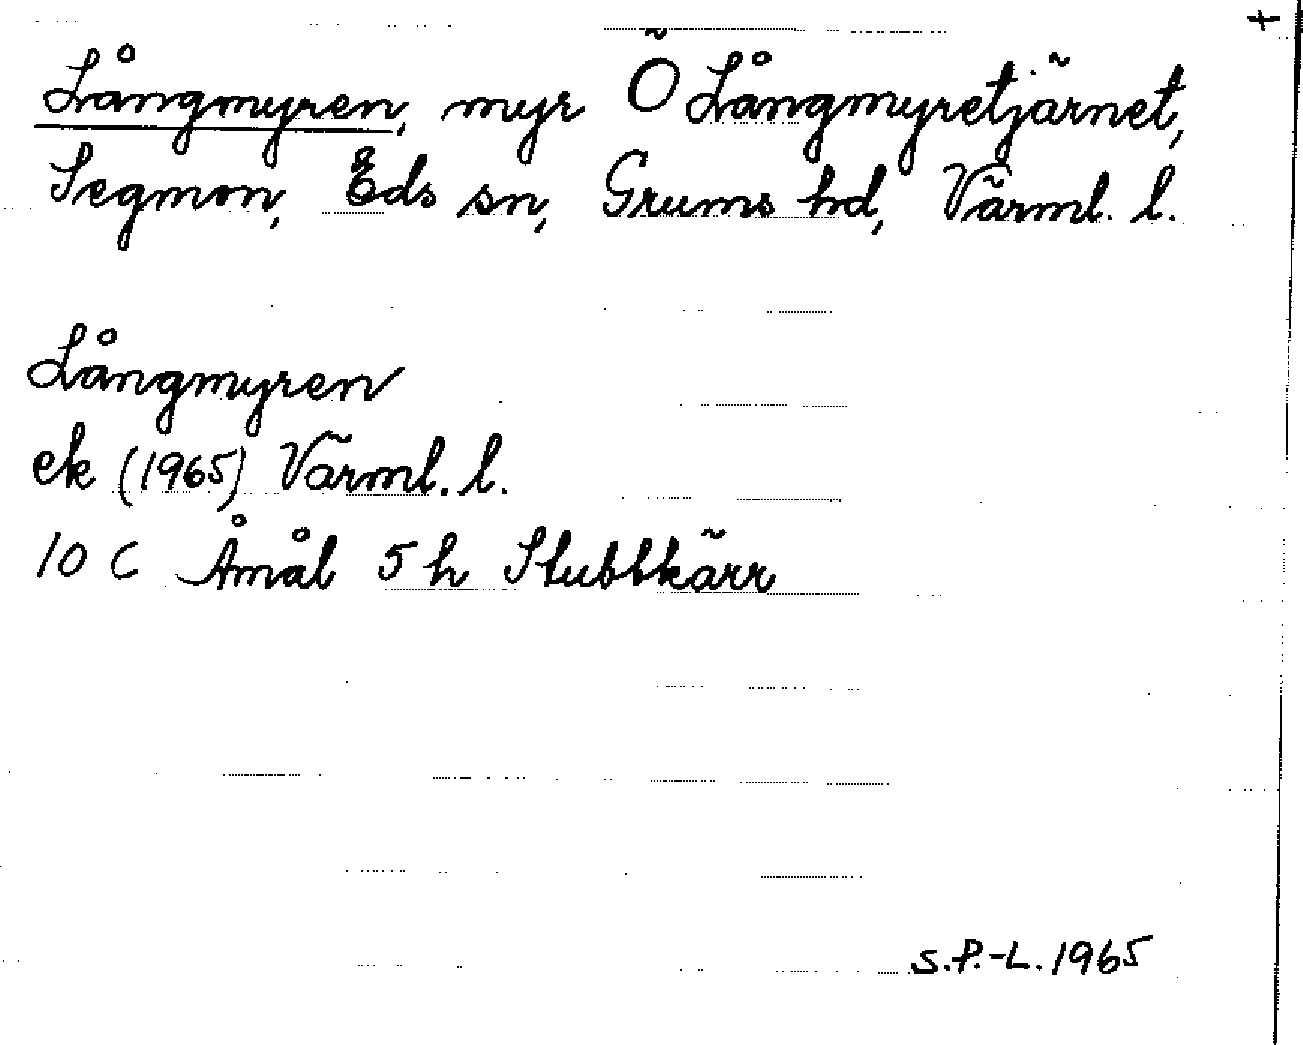 +
Långmyren, myr Ö Långmyretjärnet,
Segmon, Eds sn, Grums hd, Värml. l.
Långmyren
ek (1965) Värml. l.
10 C Åmål 5 h Stubbkärr
S.P.-L. 1965